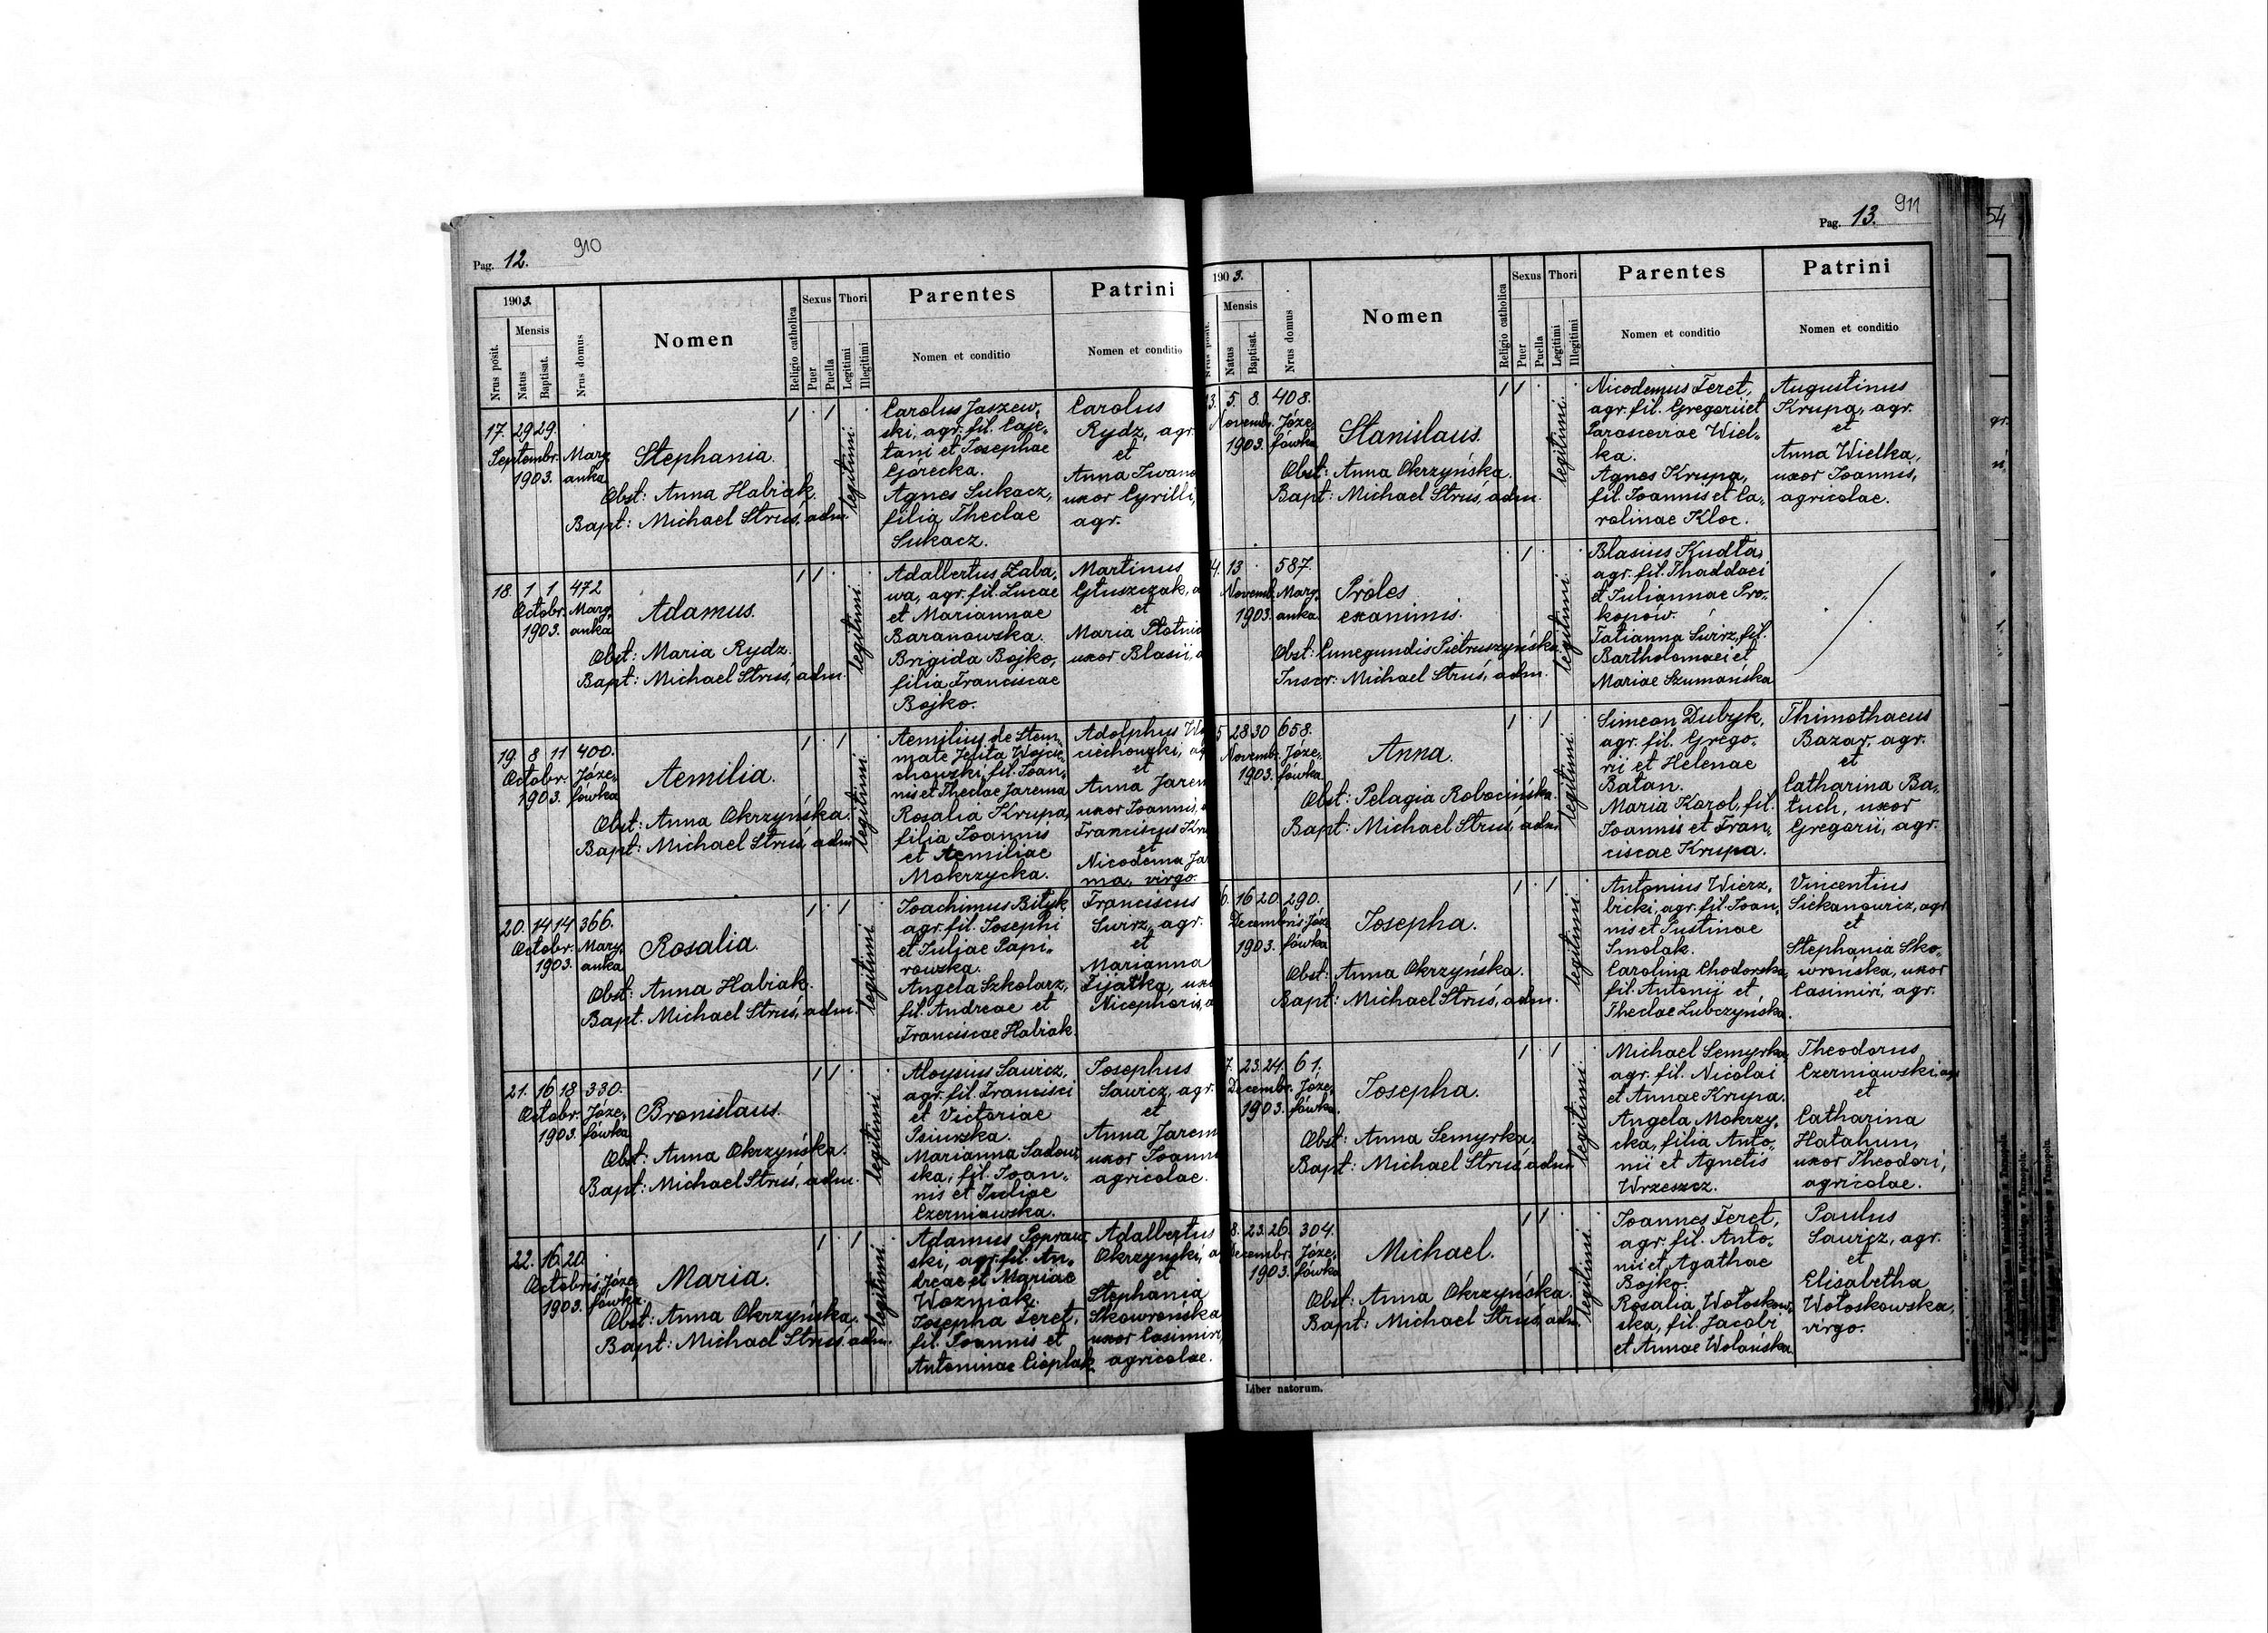 Pag. 12. 910
1903.
Nrus posit.
Mensis
Natus
Baptisat.
Nrus domus
Nomen
Religio catholica
Sexus
Puer
Puella
Thori
Legitimi
Illegitimi
Parentes
Nomen et conditio
Patrini
Nomen et conditio
17. 29 29.
Septembr. Mary
1903. anka
Stephania.
Obst: Anna Habiak.
Bapt: Michael Struś, adm.
legitimi.
Carolus Jaszew„
ski, agr. fil. Caje„
tani et Josephae
Górecka.
Agnes Łukacz,
filia Theclae
Łukacz.
Carolus
Rydz, agr.
et
Anna Iwano
uxor Cyrilli,
agr.
18. 1 1 472
Octobr. Mary„
1903. anka
Adamus.
Obst: Maria Rydz.
Bapt: Michael Struś, adm.
legitimi.
Adalbertus Zaba„
wa, agr. fil. Lucae
et Mariannae
Baranowska.
Brigida Bojko,
filia Franciscae
Bojko.
Martinus
Głuszczak, a
et
Maria Płotni
uxor Blasii, a
19. 8 11 400.
Octobr. Józe„
1903. fówka
Aemilia.
Obst: Anna Okrzyńska.
Bapt: Michael Struś, adm.
legitimi.
Aemilius de Stem„
mate Jelita Wojcie„
chowski, fil. Joan„
nis et Theclae Jarema
Rosalia Krupa,
filia Joannis
et Aemiliae
Mokrzycka.
Adolphus Wo
ciechowski, ag
et
Anna Jarem
uxor Joannis, a
Franciscus Kru
et
Nicodema Ja
ma, virgo.
20. 14 14 366.
Octobr. Mary„
1903. anka
Rosalia.
Obst: Anna Habiak.
Bapt. Michael Struś, adm.
legitimi.
Joachimus Bilyk
agr. fil. Josephi
et Juliae Papi„
rowska.
Angela Szkolarz,
fil. Andreae et
Franciscae Habiak.
Franciscus
Świrz, agr.
et
Marianna
Fijałka, uxo
Nicephoris, a
21. 16 18 330.
Octobr. Józe„
1903. fówka
Bronislaus.
Obst: Anna Okrzyńska.
Bapt: Michael Struś, adm.
legitimi.
Aloysius Sawicz,
agr. fil. Francisci
et Victoriae
Psiurska.
Marianna Sadow„
ska, fil. Joan„
nis et Juliae
Czerniawska.
Josephus
Sawicz, agr.
et
Anna Jarem
uxor Joann
agricolae.
22. 16. 20.
Octobris Józe„
1903. fówka.
Maria.
Obst: Anna Okrzyńska.
Bapt: Michael Struś, adm.
legitimi.
Adamus Popraw„
ski, agr. fil. An„
dreae et Mariae
Woźniak.
Josepha Feret,
fil. Joannis et
Antoninae Cieplak
Adalbertus
Okrzyński, a
et
Stephania
Skowrońska
uxor Casimiri,
agricolae.
Pag. 13. 911
1903.
Nrus posit.
Mensis
Natus
Baptisat.
Nrus domus
Nomen
Religio catholica
Sexus
Puer
Puella
Thori
Legitimi
Illegitimi
Parentes
Nomen et conditio
Patrini
Nomen et conditio
3. 5. 8. 408.
Novemb. Józe„
1903. fówka
Stanislaus.
Obst: Anna Okrzyńska.
Bapt: Michael Struś, adm.
legitimi.
Nicodemus Feret,
agr. fil. Gregorii et
Parasceviae Wiel„
ka.
Agnes Krupa,
fil. Joannis et Ca„
rolinae Kloc.
Augustinus
Krupa, agr.
et
Anna Wielka,
uxor Joannis,
agricolae.
4. 13 587.
Novemb. Mary„
1903. anka.
Proles
exanimis.
Obst: Cunegundis Pietruszyńska.
Inscr: Michael Struś, adm.
legitimi.
Blasius Kudła,
agr. fil. Thaddaei
et Juliannae Pro„
kopów.
Tatianna Świrz, fil.
Bartholomaei et
Mariae Szumańska
5 28 30 658.
Novemb. Józe„
1903. fówka
Anna.
Obst: Pelagia Robocińska.
Bapt: Michael Struś, adm.
legitimi.
Simeon Dubyk,
agr. fil. Grego„
rii et Helenae
Bałan.
Maria Karol, fil.
Joannis et Fran„
ciscae Krupa.
Thimothaeus
Bazar, agr.
et
Catharina Ba„
tuch, uxor
Gregorii, agr.
6. 16 20. 290.
Decembris Józe„
1903. fówka
Josepha.
Obst: Anna Okrzyńska.
Bapt: Michael Struś, adm.
legitimi.
Antonius Wierz„
bicki, agr. fil. Joan„
nis et Justinae
Smolak.
Carolina Chodorska,
fil. Antonii et
Theclae Lubczyńska.
Vincentius
Sickanowicz, agr
et
Stephania Sko„
wrońska, uxor
Casimiri, agr.
7. 23. 24. 61.
Decembr. Józe„
1903. fówka.
Josepha.
Obst: Anna Semyrka.
Bapt: Michael Struś, adm.
legitimi.
Michael Semyrka,
agr. fil. Nicolai
et Annae Krupa.
Angela Mokrzy„
cka, filia Anto„
nii et Agnetis
Wrzeszcz.
Theodorus
Czerniawski, agr
et
Catharina
Hatahun,
uxor Theodori,
agricolae.
8. 23. 26. 304.
Decembr. Józe„
1903. fówka
Michael.
Obst: Anna Okrzyńska.
Bapt: Michael Struś, adm.
legitimi.
Joannes Feret,
agr. fil. Anto„
nii et Agathae
Bojko.
Rosalia Wołoskow„
ska, fil. Jacobi
et Annae Wolańska.
Paulus
Sawicz, agr.
et
Elisabetha
Wołoskowska,
virgo.
Liber natorum.
54